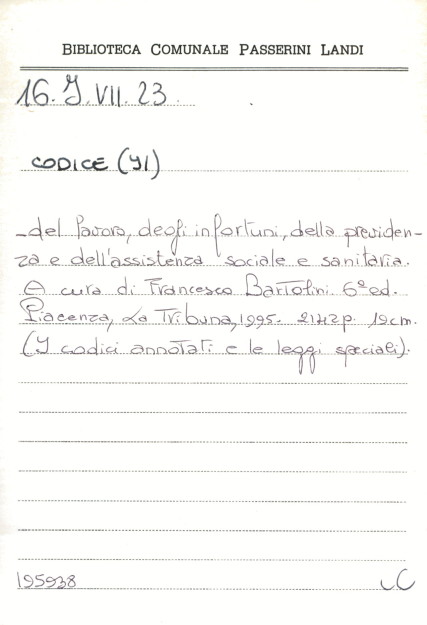 BIBLIOTECA COMUNALE PASSERINI LANDI
16. I. VII. 23
CODICE (Il)
_del lavoro, degli infortuni, della previden-
za e dell'assistenza sociale e sanitaria.
A cura di Francesco Bartolini. 6ª ed.
Piacenza, La Tribuna, 1995. 2142 p. 19 cm.
(I codici annotati e le leggi speciali).
195938